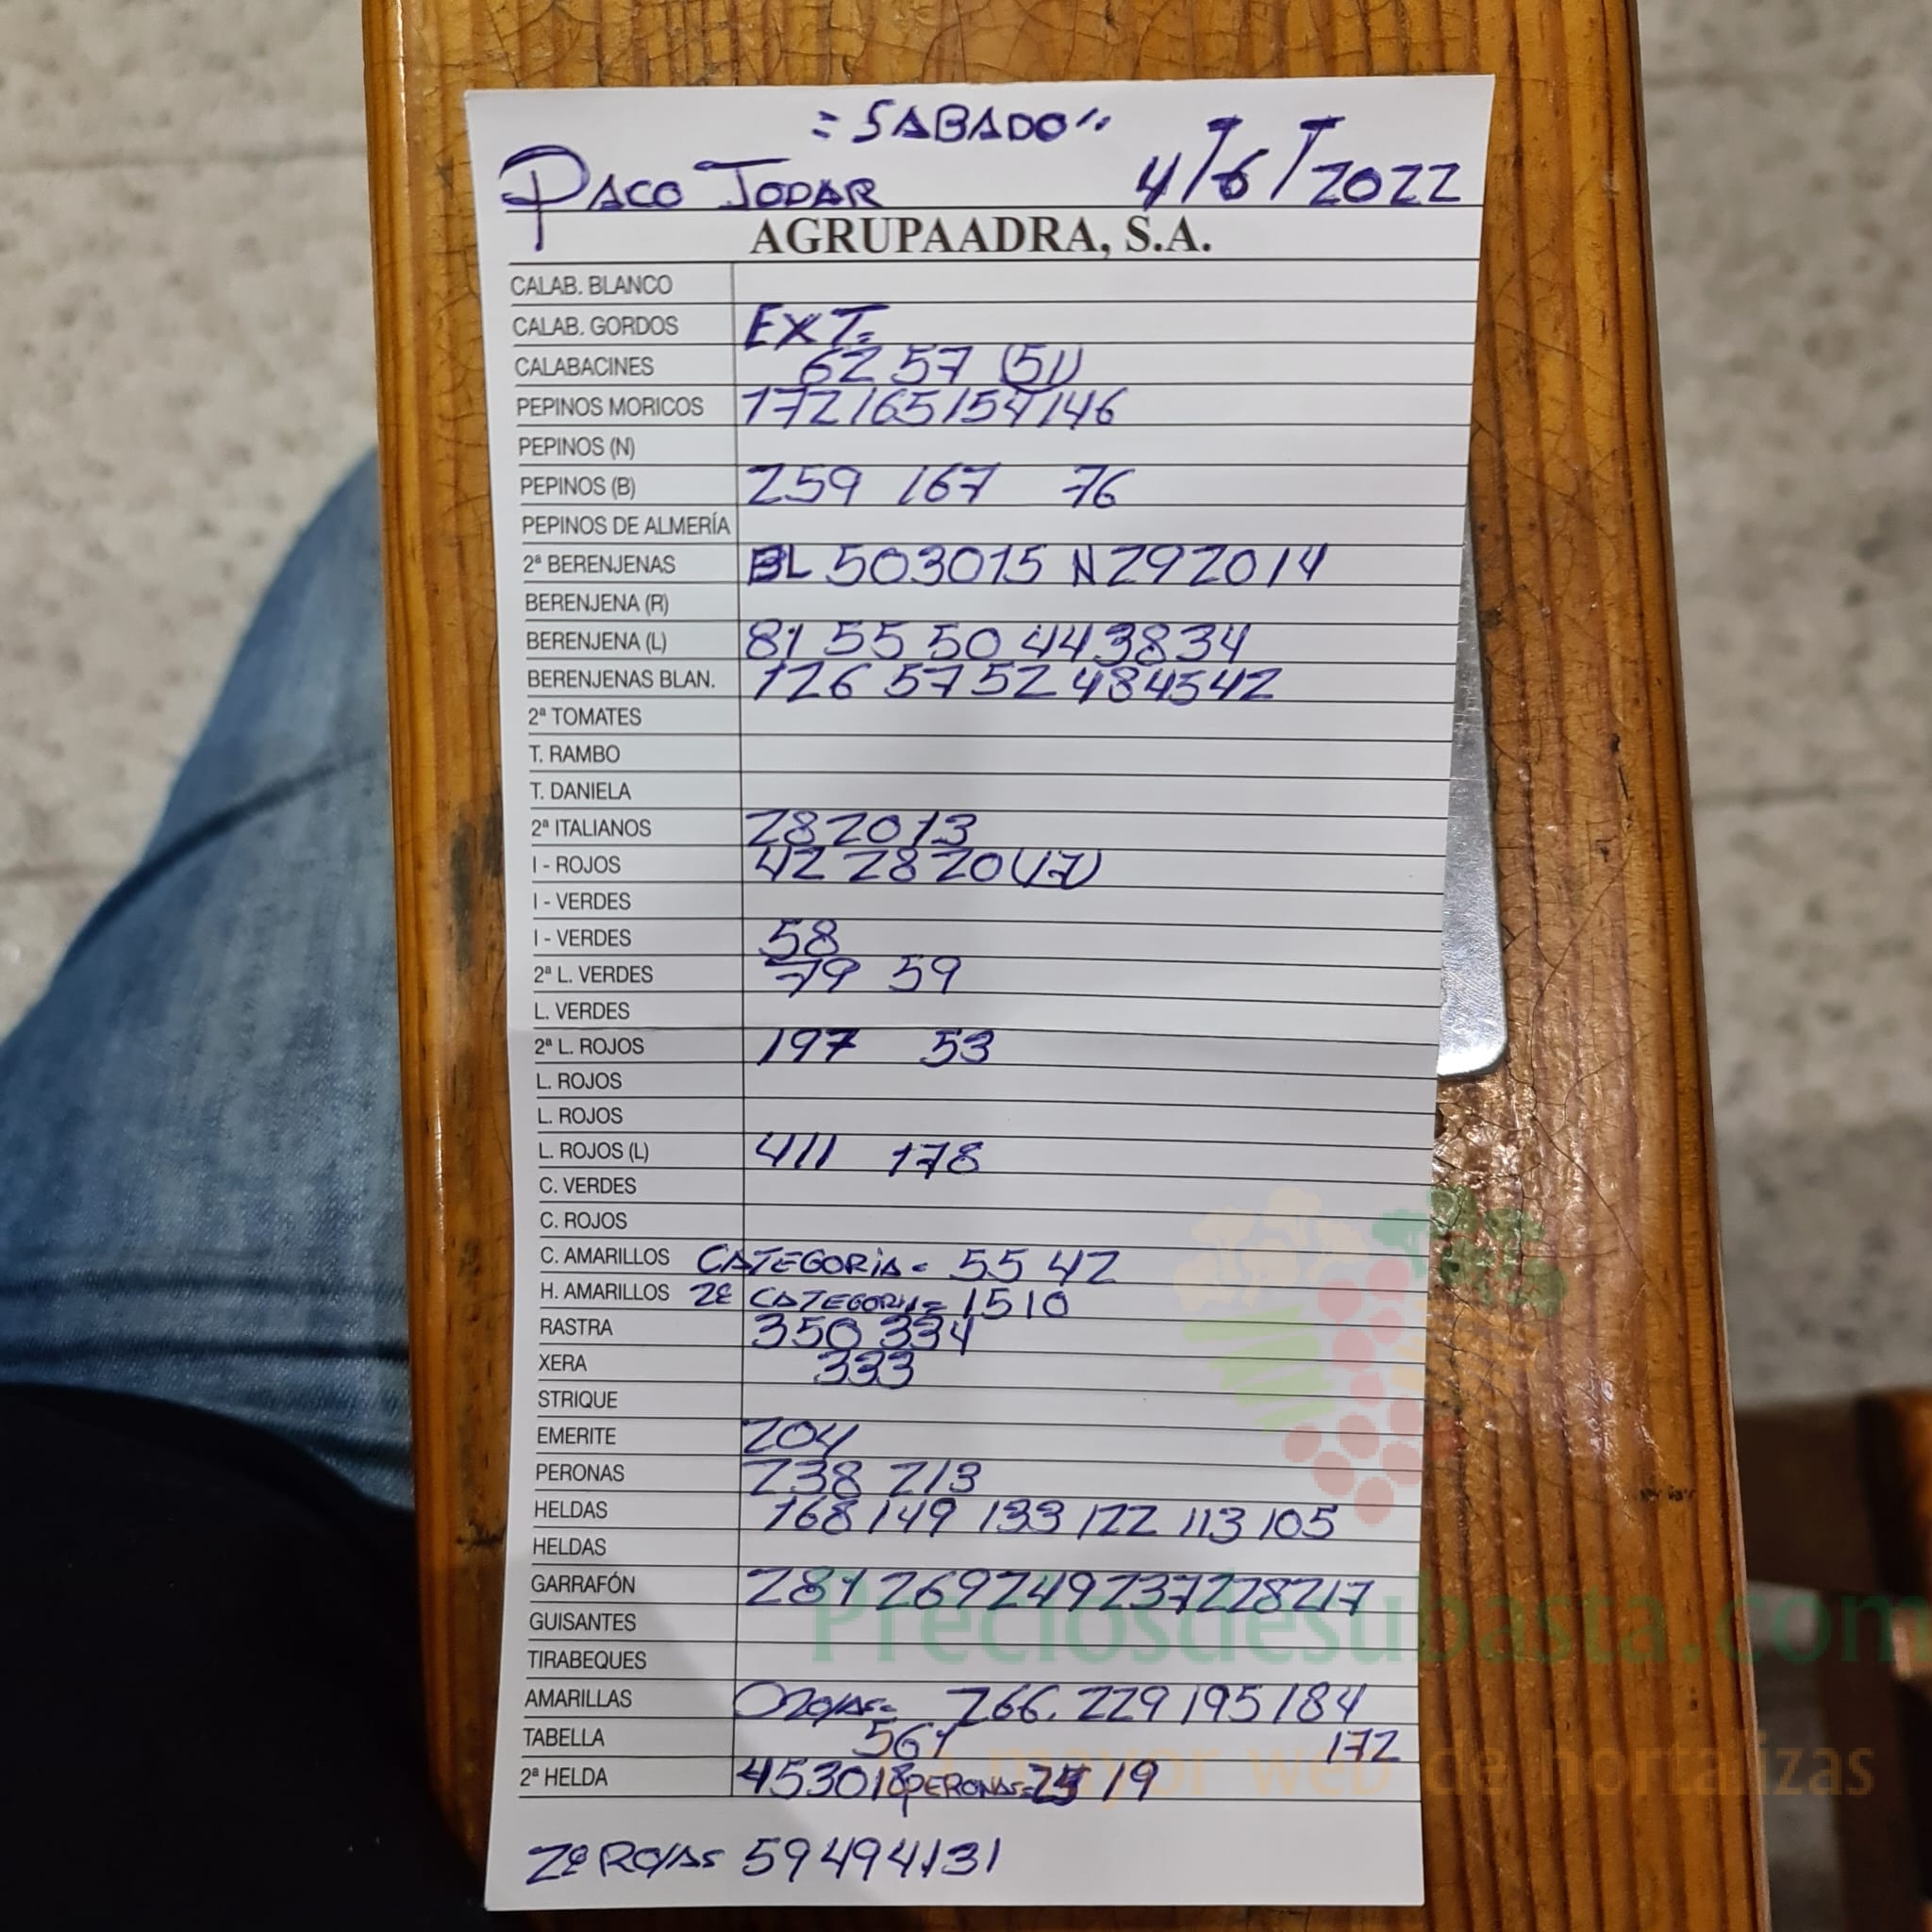 = SABADO "
PACO JODAR 4/6/2022
AGRUPAADRA, S.A.
CALAB. BLANCO
CALAB. GORDOS EXT.
CALABACINES 62 57 (51)
PEPINOS MORICOS 172 165 154 146
PEPINOS (N)
PEPINOS (B) 259 167 76
PEPINOS DE ALMERÍA
2ª BERENJENAS BL 50 30 15 N 29 20 14
BERENJENA (R)
BERENJENA (L) 81 55 50 44 38 34
BERENJENAS BLAN. 126 57 52 48 45 42
2ª TOMATES
T. RAMBO
T. DANIELA
2ª ITALIANOS 28 20 13
I - ROJOS 42 28 20 (17)
I - VERDES
I - VERDES 58
2ª L. VERDES 79 59
L. VERDES
2ª L. ROJOS 197 53
L. ROJOS
L. ROJOS
L. ROJOS (L) 411 178
C. VERDES
C. ROJOS
C. AMARILLOS CATEGORIA = 55 42
H. AMARILLOS 2ª CATEGORIA = 15 10
RASTRA 350 334
XERA 333
STRIQUE
EMERITE 204
PERONAS 238 213
HELDAS 168 149 133 122 113 105
HELDAS
GARRAFÓN 281 269 249 237 228 217
GUISANTES
TIRABEQUES
AMARILLAS 266. 229 195 184
TABELLA 561 172
2ª HELDA 45 30 18 PERONAS = 19
2ª ROJAS 59 49 41 31
Preciosdesubasta.com
mayor web de hortalizas